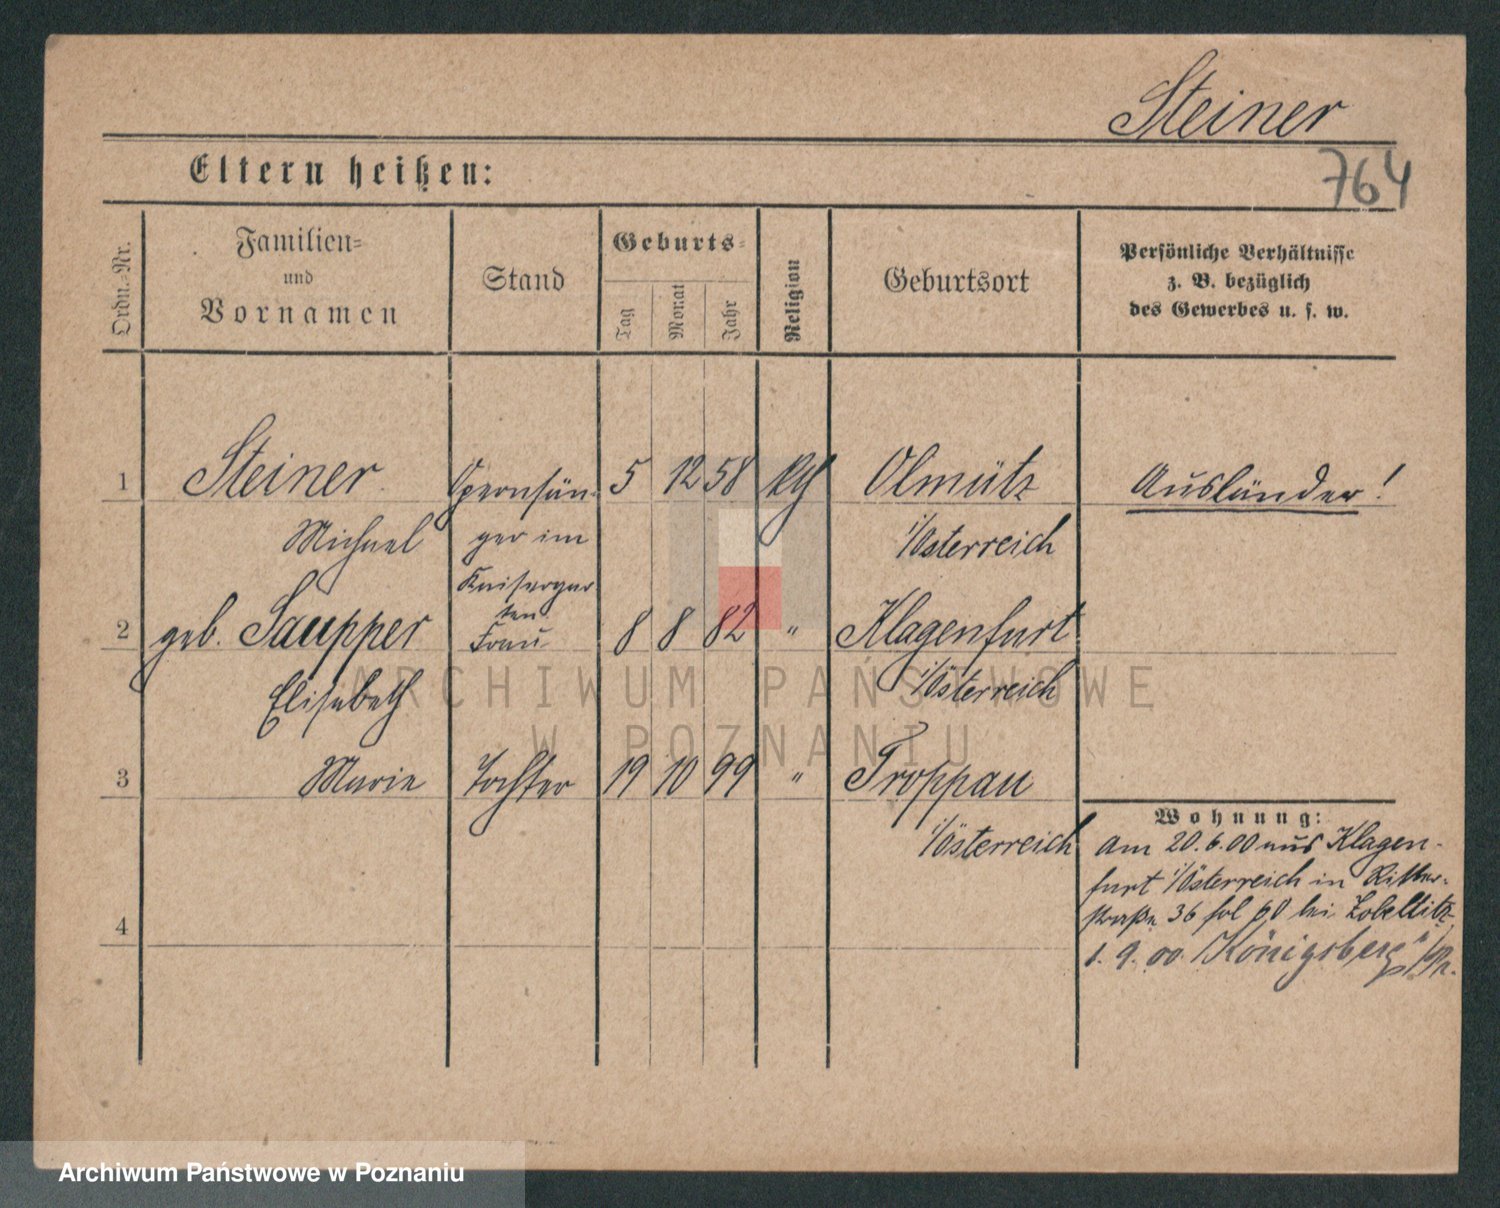 Steiner
764
Eltern heißen:
Ordn.-Nr.
Familien-
und
Vornamen
Stand
Geburts-
Tag
Monat
Jahr
Religion
Geburtsort
Persönliche Verhältnisse
z. B. bezüglich
des Gewerbes u. s. w.
1 Steiner Opernsän- 5 12 58 Olmütz Ausländer!
Michael ger im i/Österreich
Kaisergar
ten
2 geb. Saupper Frau 8 8 82 " Klagenfurt
Elisabeth i/Österreich
3 Marie Tochter 19 10 99 " Troppau
i/Österreich
Wohnung:
Am 20.6.00 aus Klagen-
furt i/Österreich in Ritter-
straße 36 fol 60 bei
1.9.00 Königsberg i/Pr.
4
ARCHIWUM PAŃSTWOWE
W POZNANIU
Archiwum Państwowe w Poznaniu